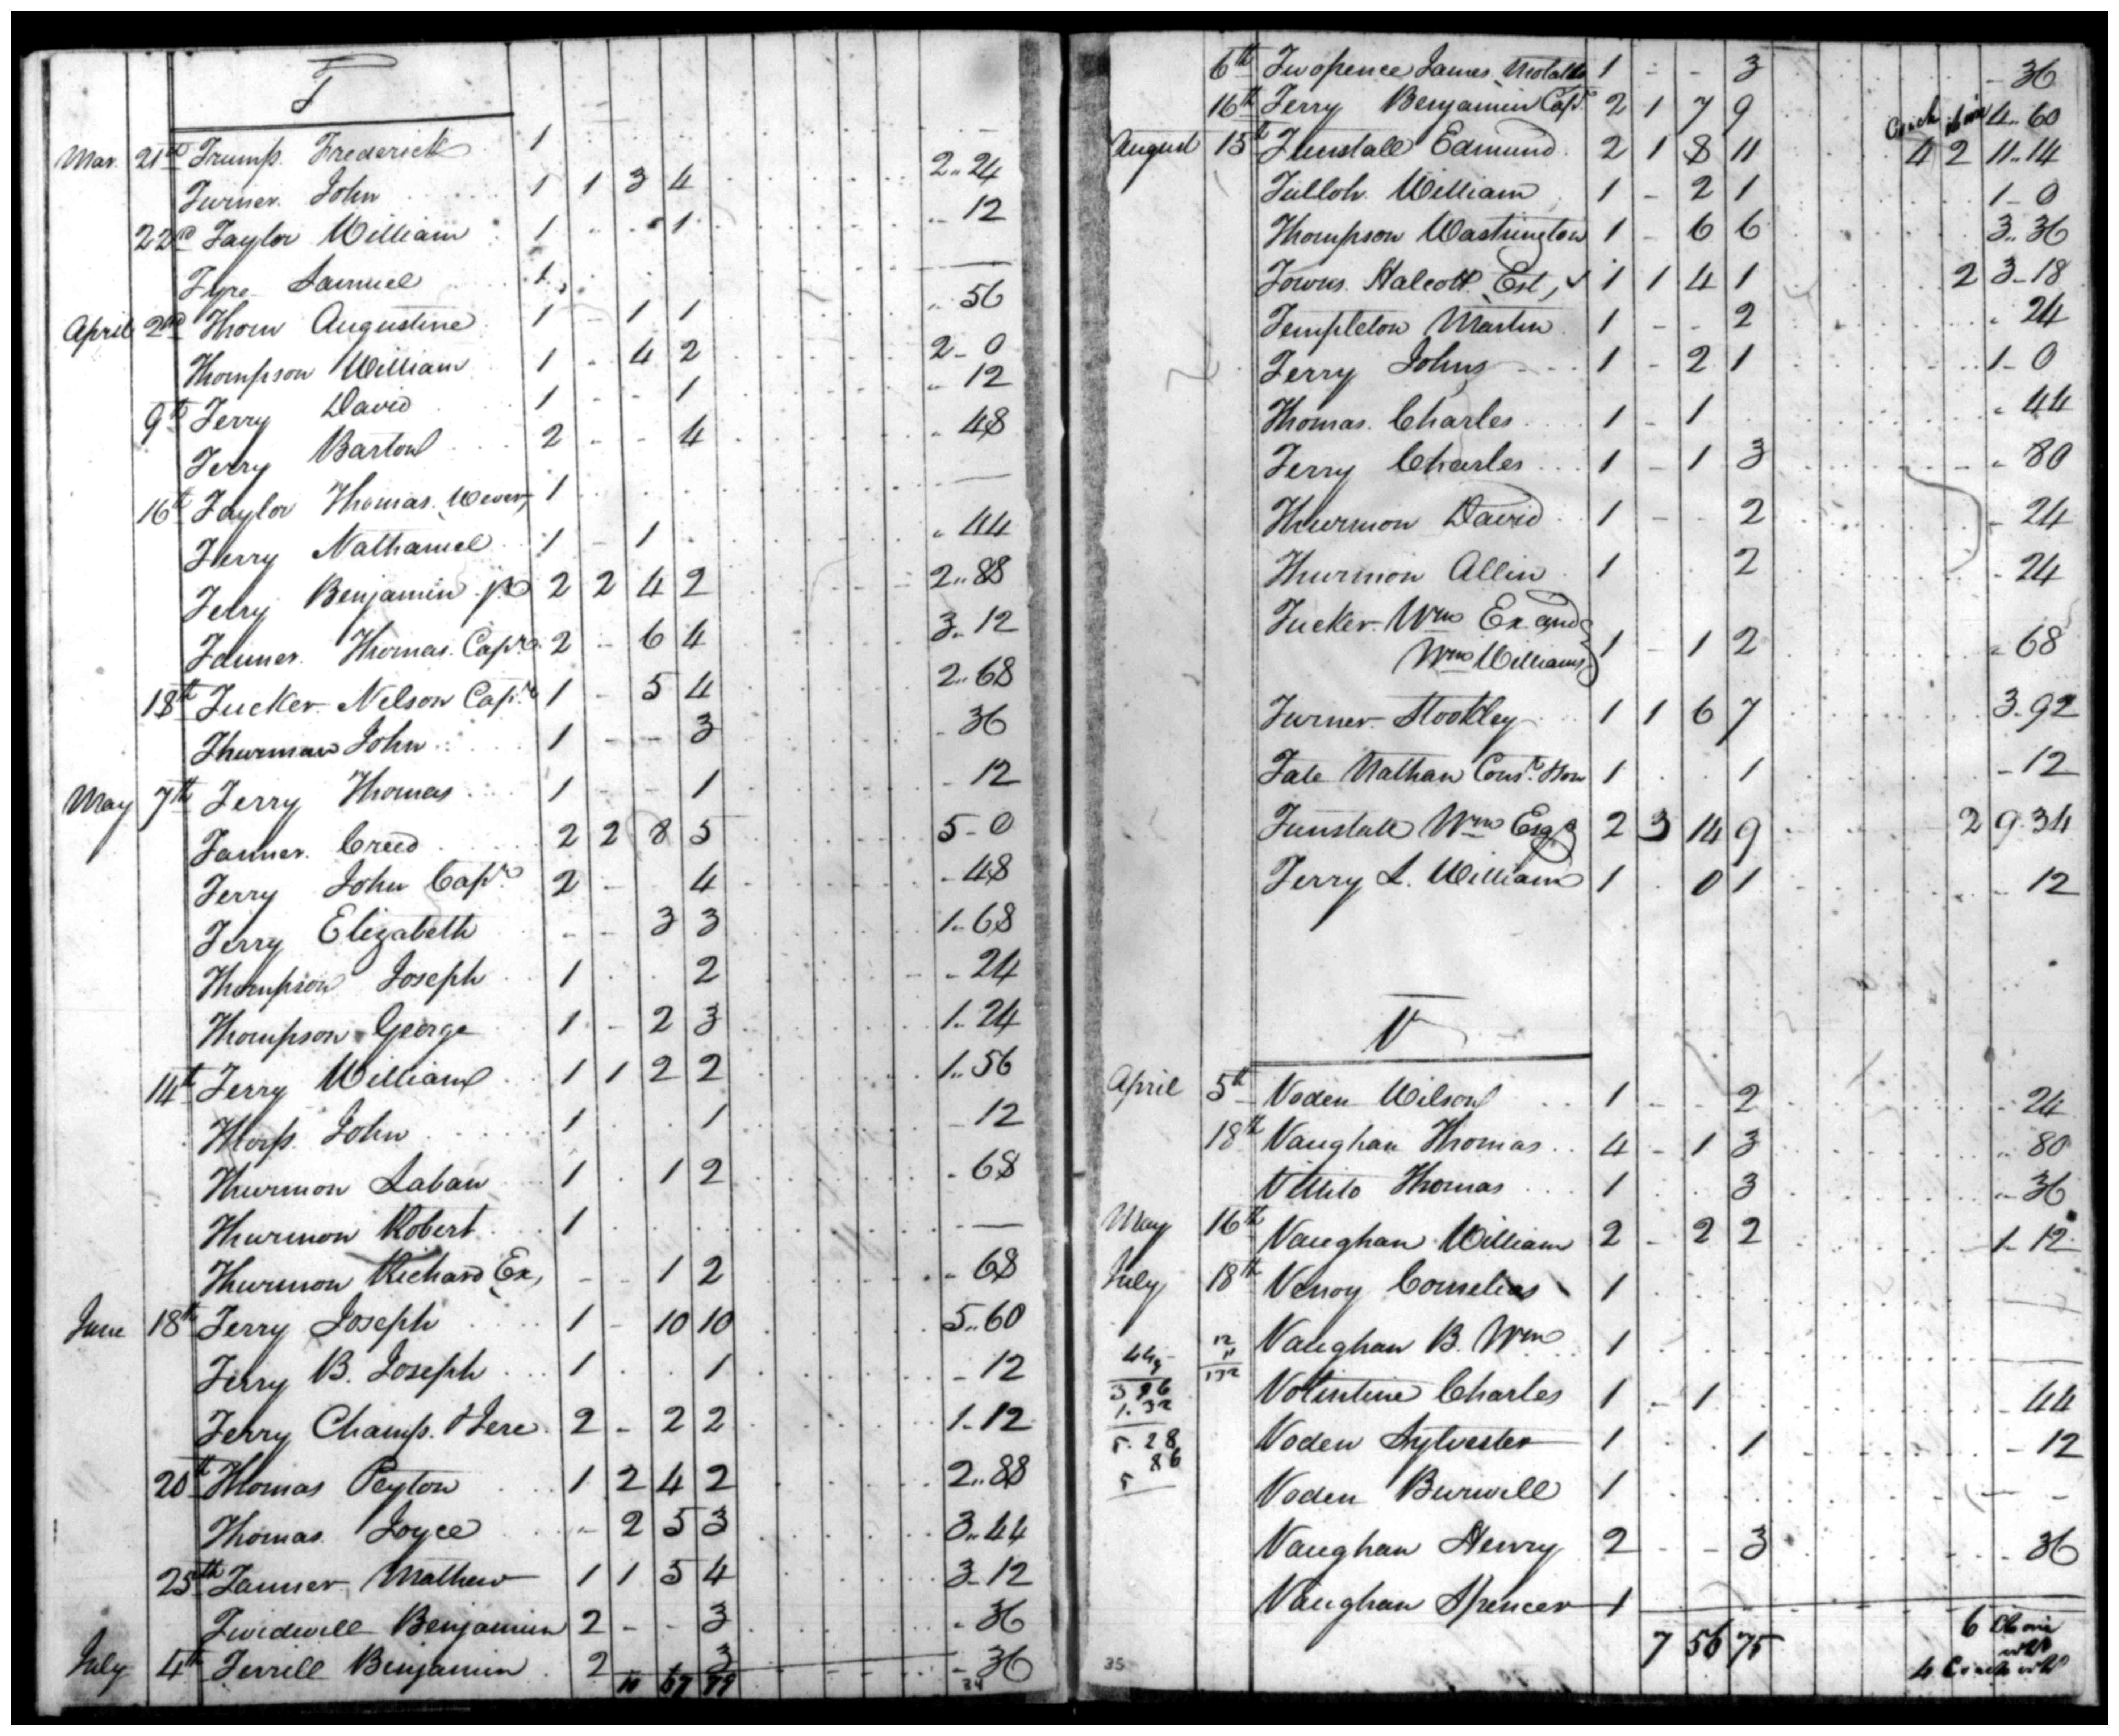 T
Mar. 21st Trump. Frederick 1
Turner. John 1 1 3 4 2.. 24
22nd Taylor William 1 1 .. 12
Tyre Samuel 1
April 2nd Thorn Augustine 1 - 1 1 .. 56
Thompson William 1 - 4 2 2 - 0
9th Terry David 1 - - 1 .. 12
Terry Barton 2 - - 4 .. 48
16th Taylor Thomas. Wever, 1
Terry Nathaniel 1 - 1 .. 44
Terry Benjamin jr 2 2 4 2 2.. 88
Tanner. Thomas. Capt. 2 - 6 4 3.. 12
18th Tucker. Nelson Capt. 1 - 5 4 2.. 68
Thurman John 1 - - 3 - 36
May 7th Terry Thomas 1 - - 1 - 12
Tanner. Creed 2 2 8 5 5 - 0
Terry John Capt. 2 - 4 - 48
Terry Elizabeth - - 3 3 1.. 68
Thompson Joseph 1 2 - 24
Thompson George 1 - 2 3 1.. 24
14th Terry William 1 1 2 2 1.. 56
Thorp. John 1 1 - 12
Thurmon Laban 1 1 2 - 68
Thurmon Robert 1
Thurmon Richard Ex, - - 1 2 - 68
June 18th Terry Joseph 1 - 10 10 5.. 60
Terry B. Joseph 1 1 - 12
Terry Champ. & Jere 2 - 2 2 1 - 12
20th Thomas Peyton 1 2 4 2 2.. 88
Thomas Joyce - 2 5 3 3.. 44
25th Tanner Mathew 1 1 5 4 3 - 12
Twidwell Benjamin 2 - - 3 - 36
July 4th Terrill Benjamin 2 3 - 36
34
6th Twopence James Molatto 1 - - 3 - 36
16th Terry Benjamin Capt. 2 1 7 9 4.. 60
Coach
August 15th Tunstall Edmund 2 1 8 11 4 2 11.. 14
Tulloh William 1 - 2 1 1 - 0
Thompson Washington 1 - 6 6 3.. 36
Towns. Halcott Est, 1 1 4 1 2 3 - 18
Templeton Martin 1 - - 2 - 24
Terry Johns 1 - 2 1 1 - 0
Thomas. Charles 1 - 1 .. 44
Terry Charles 1 - 1 3 .. 80
Thurmon David 1 - - 2 - 24
Thurmon Allin 1 2 - 24
Tucker Wm Ex and
Wm Williams 1 - 1 2 - 68
Turner Stookley 1 1 6 7 3 - 92
Tate Nathan 1 1 - 12
Tunstall Wm Esqr 2 3 14 9 2 9. 34
Terry L. William 1 0 1 - 12
V
April 5th Voden Wilson 1 - - 2 .. 24
18th Vaughan Thomas 4 - 1 3 .. 80
Thomas 1 3 .. 36
May 16th Vaughan William 2 - 2 2 1 - 12
July 18th Cornelias 1
Vaughan B. Wm 1
12
11
132
Volintine Charles 1 - 1 - 44
3 96
1. 32
Voden Sylvester 1 1 - 12
5. 28
86
5
Voden Burwell 1
Vaughan Henry 2 - - 3 - 36
Vaughan Spencer 1
7 56 75 6
4
35